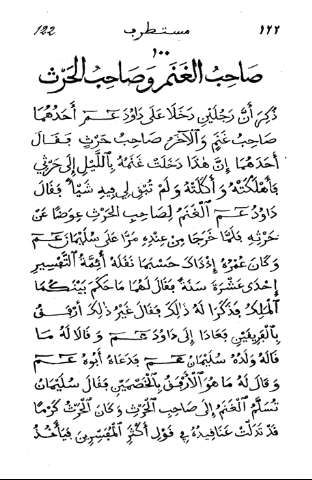 122 مستطرف ١٢٢
١٠٠
صَاحِبُ الغَنَمِ وَصَاحِبُ الحَرْثِ
ذُكِرَ أَنَّ رَجُلَيْنِ دَخَلَا عَلَى دَاوُدَ عـــم أَحَدُهُمَا
صَاحِبُ غَنَمٍ وَٱلْآخَرُ صَاحِبُ حَرْثٍ فَقَالَ
أَحَدُهُمَا إِنَّ هٰذَا دَخَلَتْ غَنَمُهُ بِٱللَّيْلِ إِلَى حَرْثِي
فَأَهْلَكَتْهُ وَأَكَلَتْهُ وَلَمْ تُبْقِ لِي فِيهِ شَيْأً فَقَالَ
دَاوُدُ عـــم ٱلْغَنَمُ لِصَاحِبِ الحَرْثِ عِوَضًا عَنْ
حَرْثِهِ فَلَمَّا خَرَجَا مِنْ عِنْدِهِ مَرَّا عَلَى سُلَيْمَانَ عـــم
وَكَانَ عُمْرُهُ إِذْ ذَاكَ حَسْبَمَا نَقَلَهُ أَئِمَّةُ ٱلتَّفْسِيرِ
إِحْدَى عَشْرَةَ سَنَةً فَقَالَ لَهُمَا مَا حَكَمَ بَيْنَكُمَا
ٱلْمَلِكُ فَذَكَرَا لَهُ ذٰلِكَ فَقَالَ غَيْرُ ذٰلِكَ أَرْفَقُ
بِٱلْفَرِيقَيْنِ فَعَادَا إِلَى دَاوُدَ عـــم وَقَالَا لَهُ مَا
قَالَهُ وَلَدُهُ سُلَيْمَانُ عـــم فَدَعَاهُ أَبُوهُ عـــم
وَقَالَ لَهُ مَا هُوَ ٱلْأَرْفَقُ بِٱلْخَصْمَيْنِ فَقَالَ سُلَيْمَانُ
تُسَلَّمُ ٱلْغَنَمُ إِلَى صَاحِبِ ٱلْحَرْثِ وَكَانَ ٱلْحَرْثُ كَرْمًا
قَدْ تَدَلَّتْ عَنَاقِيدُهُ فِي قَوْلِ أَكْثَرِ ٱلْمُفَسِّرِينَ فَيَأْخُذُ